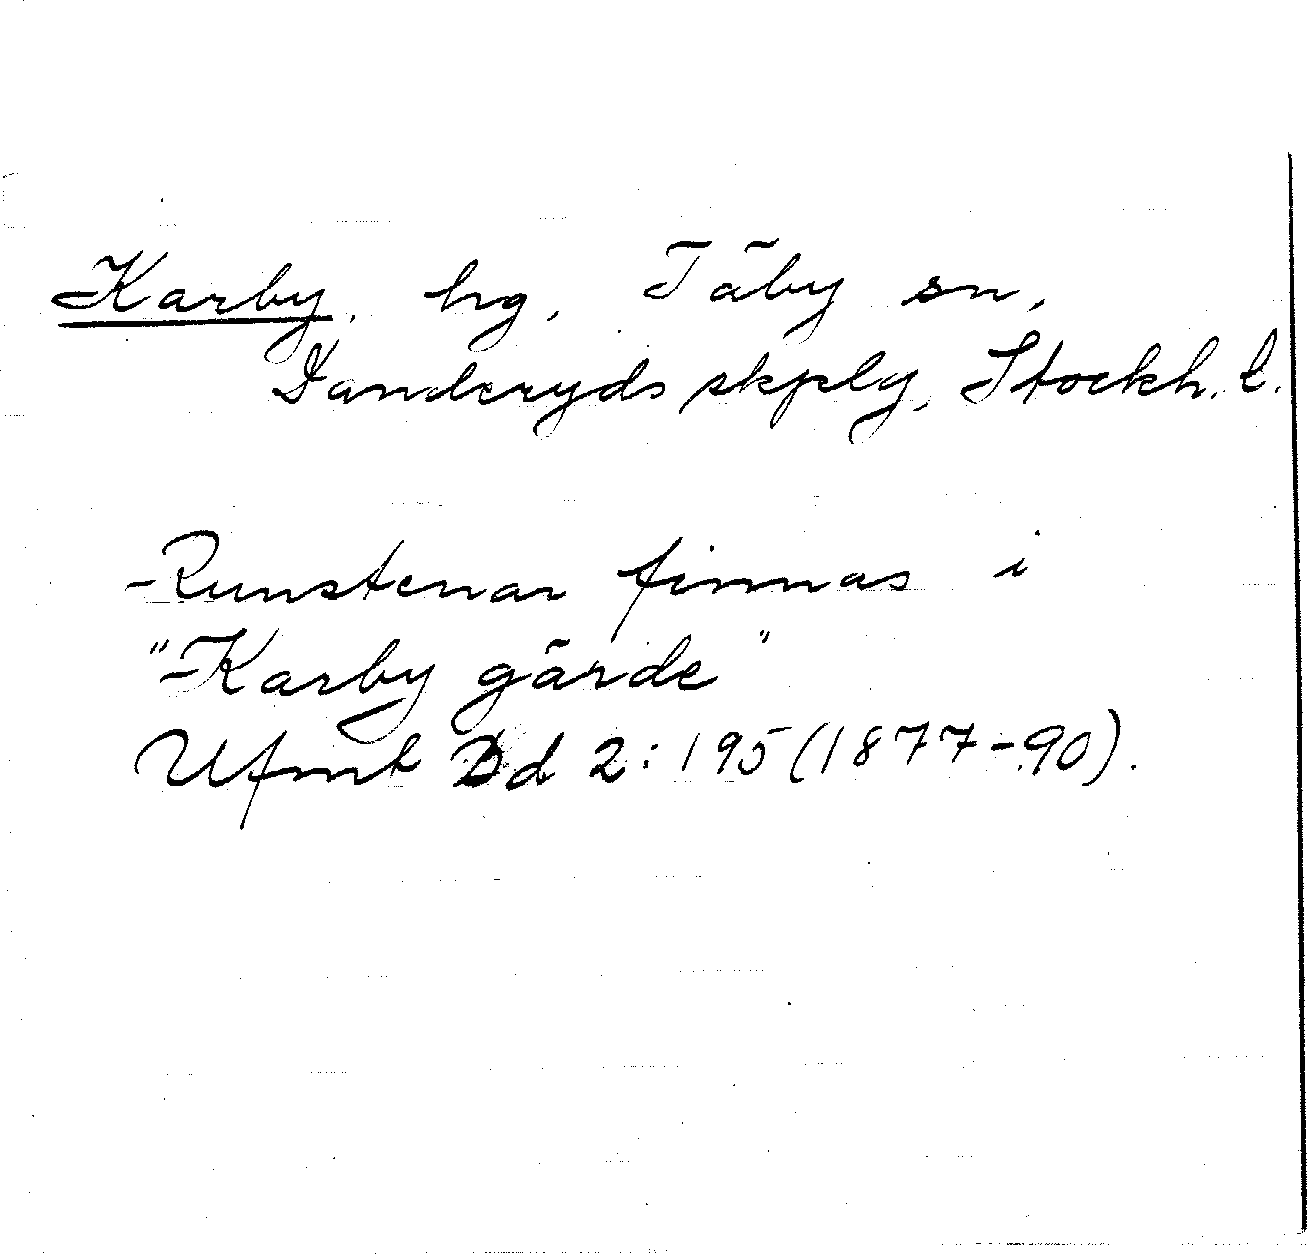 Karby, hg, Täby sn,
Danderyds skplg, Stockh. l.
Runstenar finnas i
"Karby gärde"
Ufmt Dd 2:195 (1877-90).